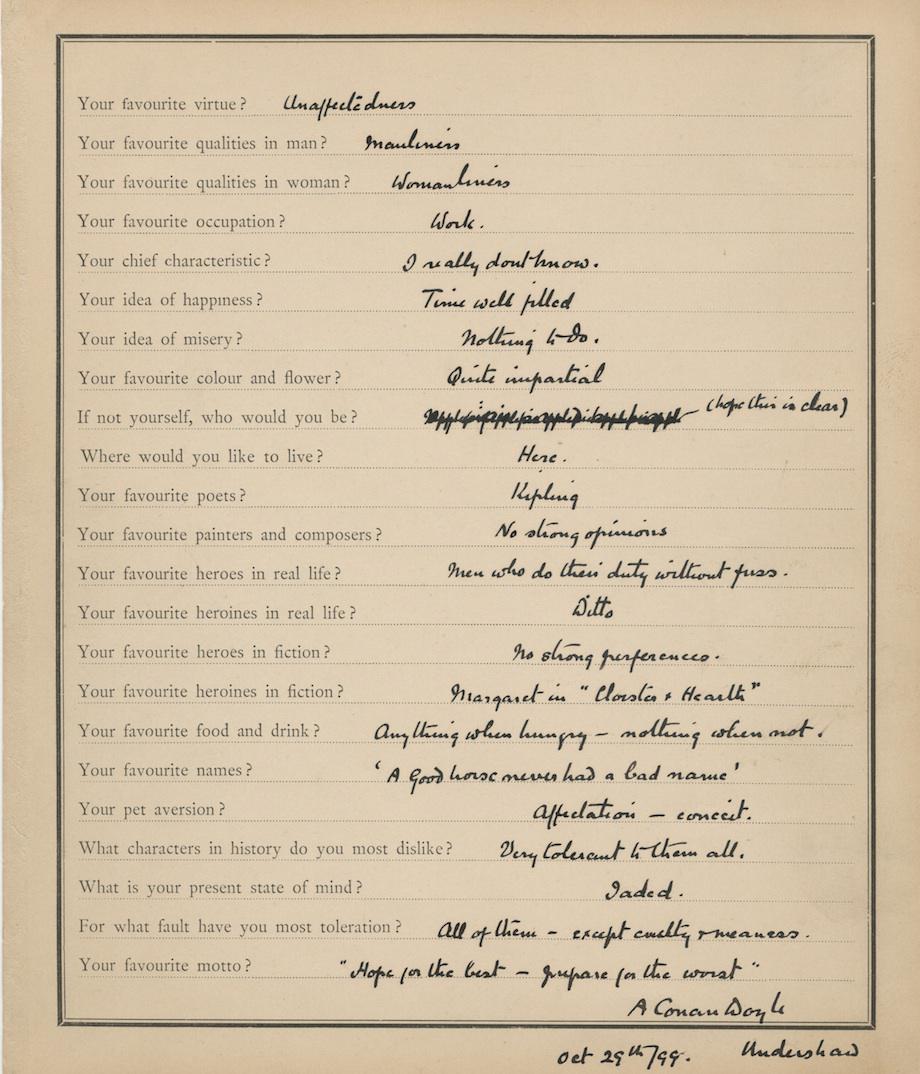 Your favourite virtue? Unaffectedness
Your favourite qualities in man? Manliness
Your favourite qualities in woman? Womanliness
Your favourite occupation? Work.
Your chief characteristic? I really dont know.
Your idea of happiness? Time well filled
Your idea of misery? Nothing to do.
Your favourite colour and flower? Quite impartial
If not yourself, who would you be? (hope this is clear)
Where would you like to live? Here.
Your favourite poets? Kipling
Your favourite painters and composers? No strong opinions
Your favourite heroes in real life? Men who do their duty without fuss.
Your favourite heroines in real life? Ditto
Your favourite heroes in fiction? No strong preferences.
Your favourite heroines in fiction? Margaret in "Cloister & Hearth"
Your favourite food and drink? Anything when hungry – nothing when not.
Your favourite names? 'A Good horse never had a bad name'
Your pet aversion? Affectation – conceit.
What characters in history do you most dislike? Very tolerant to them all.
What is your present state of mind? Jaded.
For what fault have you most toleration? All of them – except cruelty & meaness.
Your favourite motto? "Hope for the best – prepare for the worst"
A Conan Doyle
Oct 29th/99. Undershaw